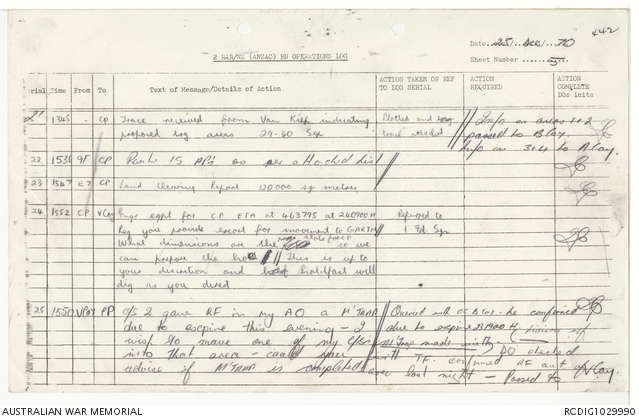 442
Date 25 Dec 70
2 RAR/NZ (ANZAC) BN OPERATIONS LOG
Sheet Number 5
Serial Time From To Text of Message/Details of Action ACTION TAKEN OR REF TO LOG SERIAL ACTION REQUIRED ACTION COMPLETE DOs inits
21 1345 - CP Trace received from Van Kiep indicating
proposed log areas 29-60 Sex
Plotted and
trace attached
Info on areas 1+2
passed to B Coy.
Info on 3+4 to A Coy.
22 1536 9F CP Route 15 RPs as per attached list
23 1547 E7 CP Land Clearing Report 120000 sq metres
24 1552 CP VCoy Engr eqpt for CP ETA at 463795 at 240900H
Req you provide escort for movement to GARTH
What dimensions are the
so we
can prepare the hole // This is up to
your discretion and holdfast will
dig as you desired
Referred to
1 Fd Sqn
25 1550 VCoy CP c/s 2 gave RF in my AO a M'TRAP
due to expire this evening - I
wish to move one of my c/s
into that area - could you
advise if M'TRAP is completed
Queried with OC B Coy - he confirmed
due to expire 231900H
made with DO checked
with TF. confirmed RF out
last night - Passed to V Coy.
AUSTRALIAN WAR MEMORIAL
RCDIG1029990